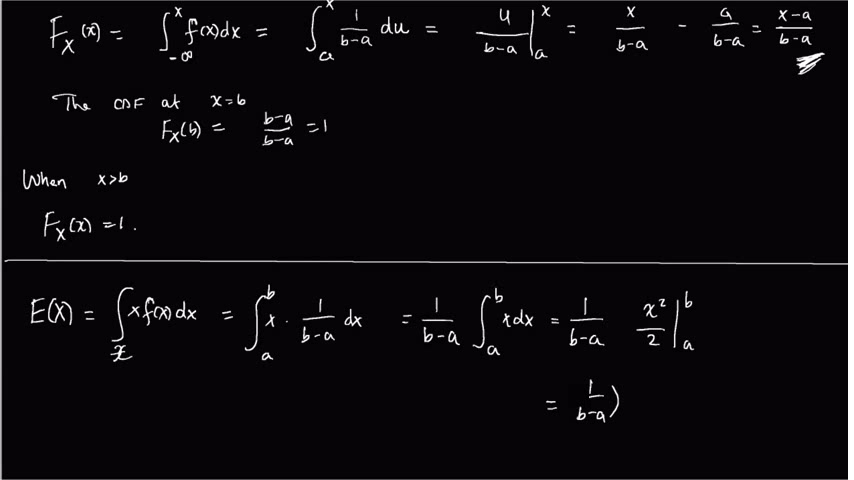 F_X(x) = ∫_{-∞}^{x} f(x)dx = ∫_{a}^{x} 1/(b-a) du = u/(b-a) |_{a}^{x} = x/(b-a) - a/(b-a) = (x-a)/(b-a)
The CDF at x=b
F_X(b) = (b-a)/(b-a) = 1
When x>b
F_X(x) = 1.
E(X) = ∫_{x} x f(x) dx = ∫_{a}^{b} x · 1/(b-a) dx = 1/(b-a) ∫_{a}^{b} x dx = 1/(b-a) x²/2 |_{a}^{b}
= 1/(b-a) )